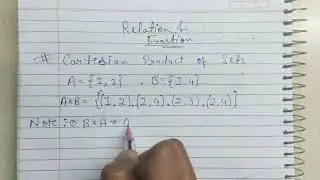 Relation &
Function
# Cartesian Product of Sets
A = {1, 2} , B = {1, 4}
A×B = {(1, 2), (1, 4), (2, 3), (2, 4)}
Note :- ① B×A ≠